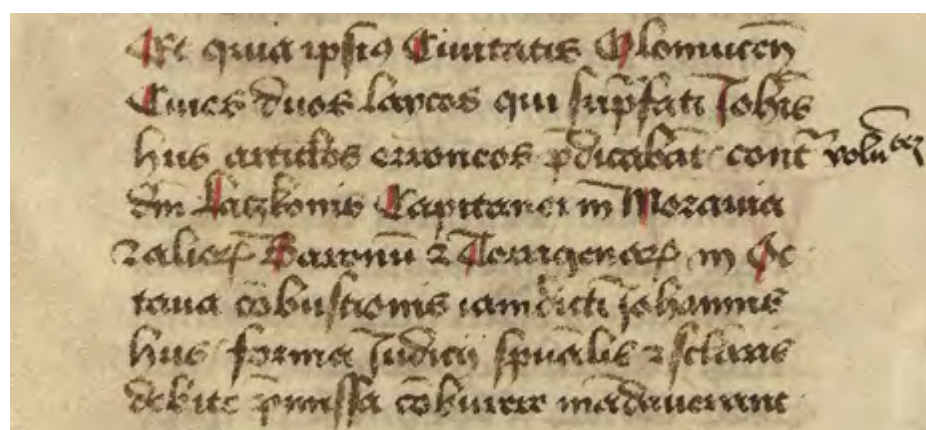 Et quia ipsiꝰ Ciuitatis Olomucen̄
Ciues duos laycos qui sup̄fati Joh̄is
hus articl̄os erroneos p̄dicabāt cont̄ volūtez
dm̄ Latzkonis Capitanei in Morauia
⁊ alioꝝ Baronū ⁊ Terrigenaꝝ in Oc
taua cōbustionis iamdicti Johannis
hus forma Judicij sp̄ualis ⁊ sclaris
debite p̄missa cōburere mādauerant